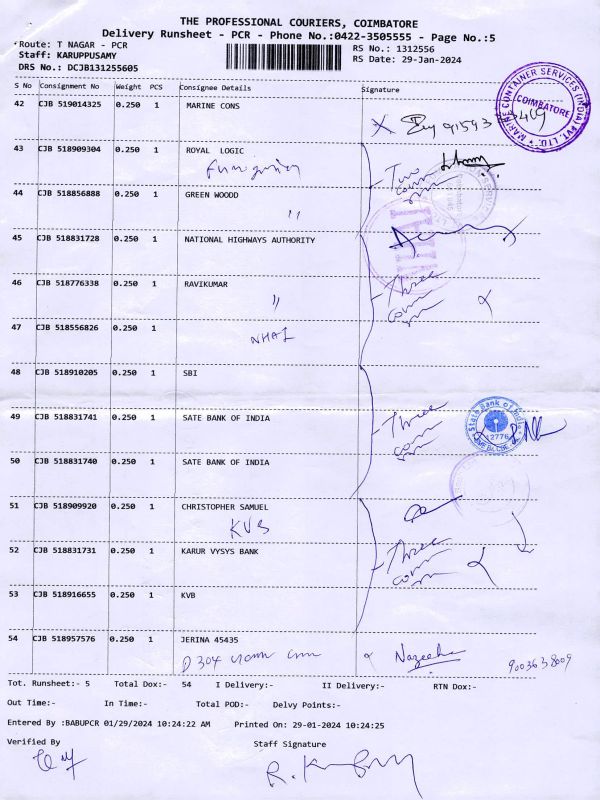 THE PROFESSIONAL COURIERS, COIMBATORE
Delivery Runsheet - PCR - Phone No.:0422-3505555 - Page No.:5
Route: T NAGAR - PCR
RS No.: 1312556
Staff: KARUPPUSAMY
RS Date: 29-Jan-2024
DRS No.: DCJB131255605
S No Consignment No Weight PCS Consignee Details Signature
42 CJB 519014325 0.250 1 MARINE CONS
MARINE CONTAINER SERVICES (INDIA) PVT. LTD.
COIMBATORE
43 CJB 518909304 0.250 1 ROYAL LOGIC
Two
44 CJB 518856888 0.250 1 GREEN WOODD
"
45 CJB 518831728 0.250 1 NATIONAL HIGHWAYS AUTHORITY
46 CJB 518776338 0.250 1 RAVIKUMAR
"
Three
47 CJB 518556826 0.250 1
NHAI
48 CJB 518910205 0.250 1 SBI
49 CJB 518831741 0.250 1 SATE BANK OF INDIA
Three
State Bank of India
12776
50 CJB 518831740 0.250 1 SATE BANK OF INDIA
51 CJB 518909920 0.250 1 CHRISTOPHER SAMUEL
KVB
52 CJB 518831731 0.250 1 KARUR VYSYS BANK
Three
53 CJB 518916655 0.250 1 KVB
54 CJB 518957576 0.250 1 JERINA 45435
D 304
Nazeeha
9003638009
Tot. Runsheet:- 5 Total Dox:- 54 I Delivery:- II Delivery:- RTN Dox:-
Out Time:- In Time:- Total POD:- Delvy Points:-
Entered By :BABUPCR 01/29/2024 10:24:22 AM Printed On: 29-01-2024 10:24:25
Verified By Staff Signature